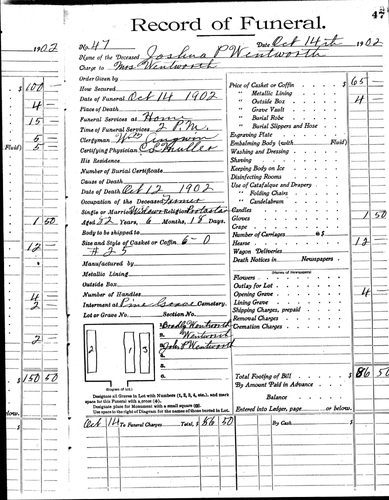 47
Record of Funeral.
1902
No. 47
Date Oct 14th 1902
Name of the Deceased Joshua P Wentworth
Charge to Mrs Wentworth
Order Given by
How Secured
Date of Funeral Oct 14 1902
Place of Death
Funeral Services at Home
Time of Funeral Services 2 P.M.
Clergyman Wm
Certifying Physician
His Residence
Number of Burial Certificate
Cause of Death
Date of Death Oct 12 1902
Occupation of the Deceased Farmer
Single or Married Widower Religion
Aged 82 Years, 6 Months, 18 Days.
Body to be shipped to
Size and Style of Casket or Coffin 6-0
#25
Manufactured by
Metallic Lining
Outside Box
Number of Handles
Interment at Pine Grove Cemetery.
Lot or Grave No. Section No.
1. Bradly Wentworth
2. Wentworth
3. John P Wentworth
4.
5.
6.
2 1 3
(Diagram of Lot.)
Designate all Graves in Lot with Numbers (1, 2, 3, 4, etc.), and mark
space for this Funeral with a cross (+).
Designate place for Monument with a small square (□).
Use space to the right of Diagram for the names of those buried in Lot.
Oct 14 To Funeral Charges Total, $ 86 50
Price of Casket or Coffin $ 65
" Metallic Lining
" Outside Box 4
" Grave Vault
" Burial Robe
" Burial Slippers and Hose
Engraving Plate
Embalming Body (with Fluid)
Washing and Dressing
Shaving
Keeping Body on Ice
Disinfecting Rooms
Use of Catafalque and Drapery
" Folding Chairs
" Candelabrum
Candles
Gloves 1 50
Crape
Number of Carriages @$
Hearse 12
Wagon Deliveries
Death Notices in Newspapers
(Names of Newspapers)
Flowers
Outlay for Lot
Opening Grave 4
Lining Grave
Shipping Charges, prepaid
Removal Charges
Cremation Charges
Total Footing of Bill $ 86 50
By Amount Paid in Advance
Balance
Entered into Ledger, page or below.
By Cash $
1902
$ 100
4
15
Fluid) 5
5
1 50
12
4
2
2
$ 150 50
below.
$